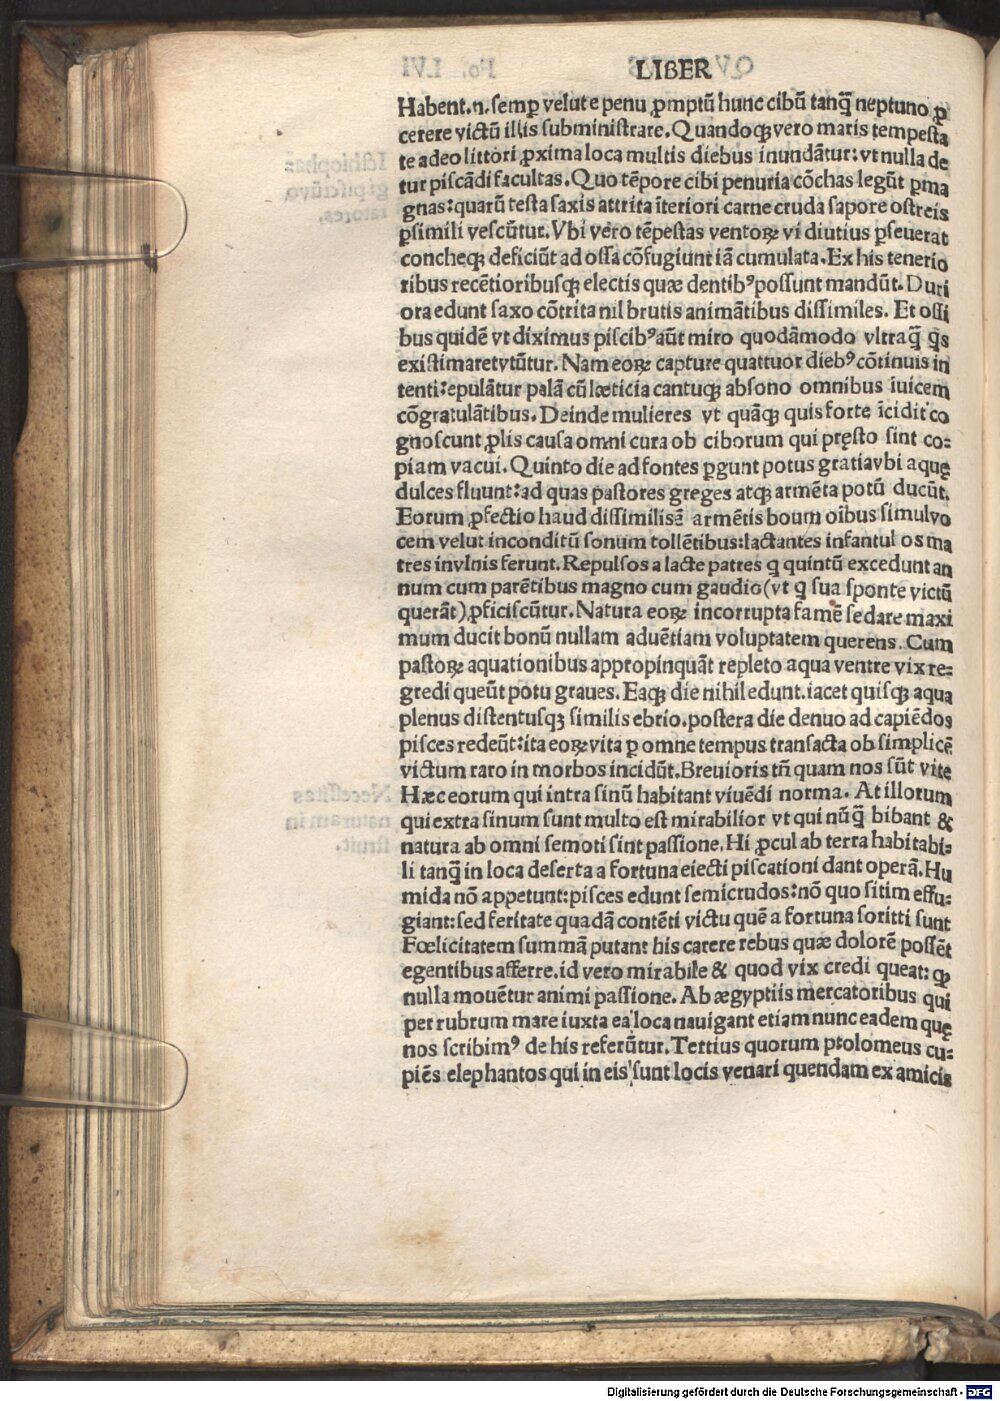 LIBER
Habent.n.semꝑ velut e penu ꝓmptū hunc cibū tanq̄ neptuno ꝓ
cerere victū illis subministrare.Quandoqꝫ vero maris tempesta
te adeo littori ꝓxima loca multis diebus inundātur:vt nulla de
tur piscādi facultas.Quo tēpore cibi penuria cōchas legūt ꝑma
gnas:quarū testa saxis attrita īteriori carne cruda sapore ostreis
ꝑsimili vescūtur.Vbi vero tēpestas ventoꝝ vi diutius ꝑseuerat
concheqꝫ deficiūt ad ossa cōfugiunt iā cumulata.Ex his tenerio
ribus recētioribusqꝫ electis quæ dentibꝰ possunt mandūt.Duri
ora edunt saxo cōtrita nil brutis animātibus dissimiles. Et ossi
bus quidē vt diximus piscibꝰ aūt miro quodāmodo vltraq̄ q̄s
existimaret vtūtur. Nam eoꝝ capture quattuor diebꝰ cōtinuis in
tenti:epulātur palā cū lœticia cantuqꝫ absono omnibus iuicem
cōgratulātibus.Deinde mulieres vt quāqꝫ quis forte īcidit co
gnoscunt ꝓlis causa omni cura ob ciborum qui pręsto sint co:
piam vacui.Quinto die ad fontes ꝑgunt potus gratia vbi aquę
dulces fluunt:ad quas pastores greges atqꝫ armēta potū ducūt.
Eorum ꝓfectio haud dissimilis ē armētis boum oībus simul vo
cem velut inconditū sonum tollētibus:lactantes infantul os ma
tres in vlnis ferunt.Repulsos a lacte patres q quintū excedunt an
num cum parētibus magno cum gaudio(vt q sua sponte victū
querāt)ꝓficiscūtur.Natura eoꝝ incorrupta famē sedare maxi
mum ducit bonū nullam aduētiam voluptatem querens.Cum
pastoꝝ aquationibus appropinquāt repleto aqua ventre vix re:
gredi queūt potu graues.Eaqꝫ die nihil edunt.iacet quisqꝫ aqua
plenus distentusqꝫ similis ebrio.postera die denuo ad capiēdos
pisces redeūt:ita eoꝝ vita ꝑ omne tempus transacta ob simplicē
victum raro in morbos incidūt.Breuioris tñ quam nos sūt vite
Hæc eorum qui intra sinū habitant viuēdi norma. At illorum
qui extra sinum sunt multo est mirabilior vt qui nūq̄ bibant &
natura ab omni semoti sint passione.Hi ꝓcul ab terra habitabi:
li tanq̄ in loca deserta a fortuna eiecti piscationi dant operā.Hu
mida nō appetunt:pisces edunt semicrudos:nō quo sitim effu:
giant:sed feritate quadā contēti victu quē a fortuna soritti sunt
Fœlicitatem summā putant his carere rebus quæ dolorē possēt
egentibus afferre.id vero mirabile & quod vix credi queat: ꝙ
nulla mouētur animi passione. Ab ægyptiis mercatoribus qui
per rubrum mare iuxta ea loca nauigant etiam nunc eadem quę
nos scribimꝰ de his referūtur.Tertius quorum ptolomeus cu:
piēs elephantos qui in eis sunt locis venari quendam ex amicis
Digitalisierung gefördert durch die Deutsche Forschungsgemeinschaft - DFG